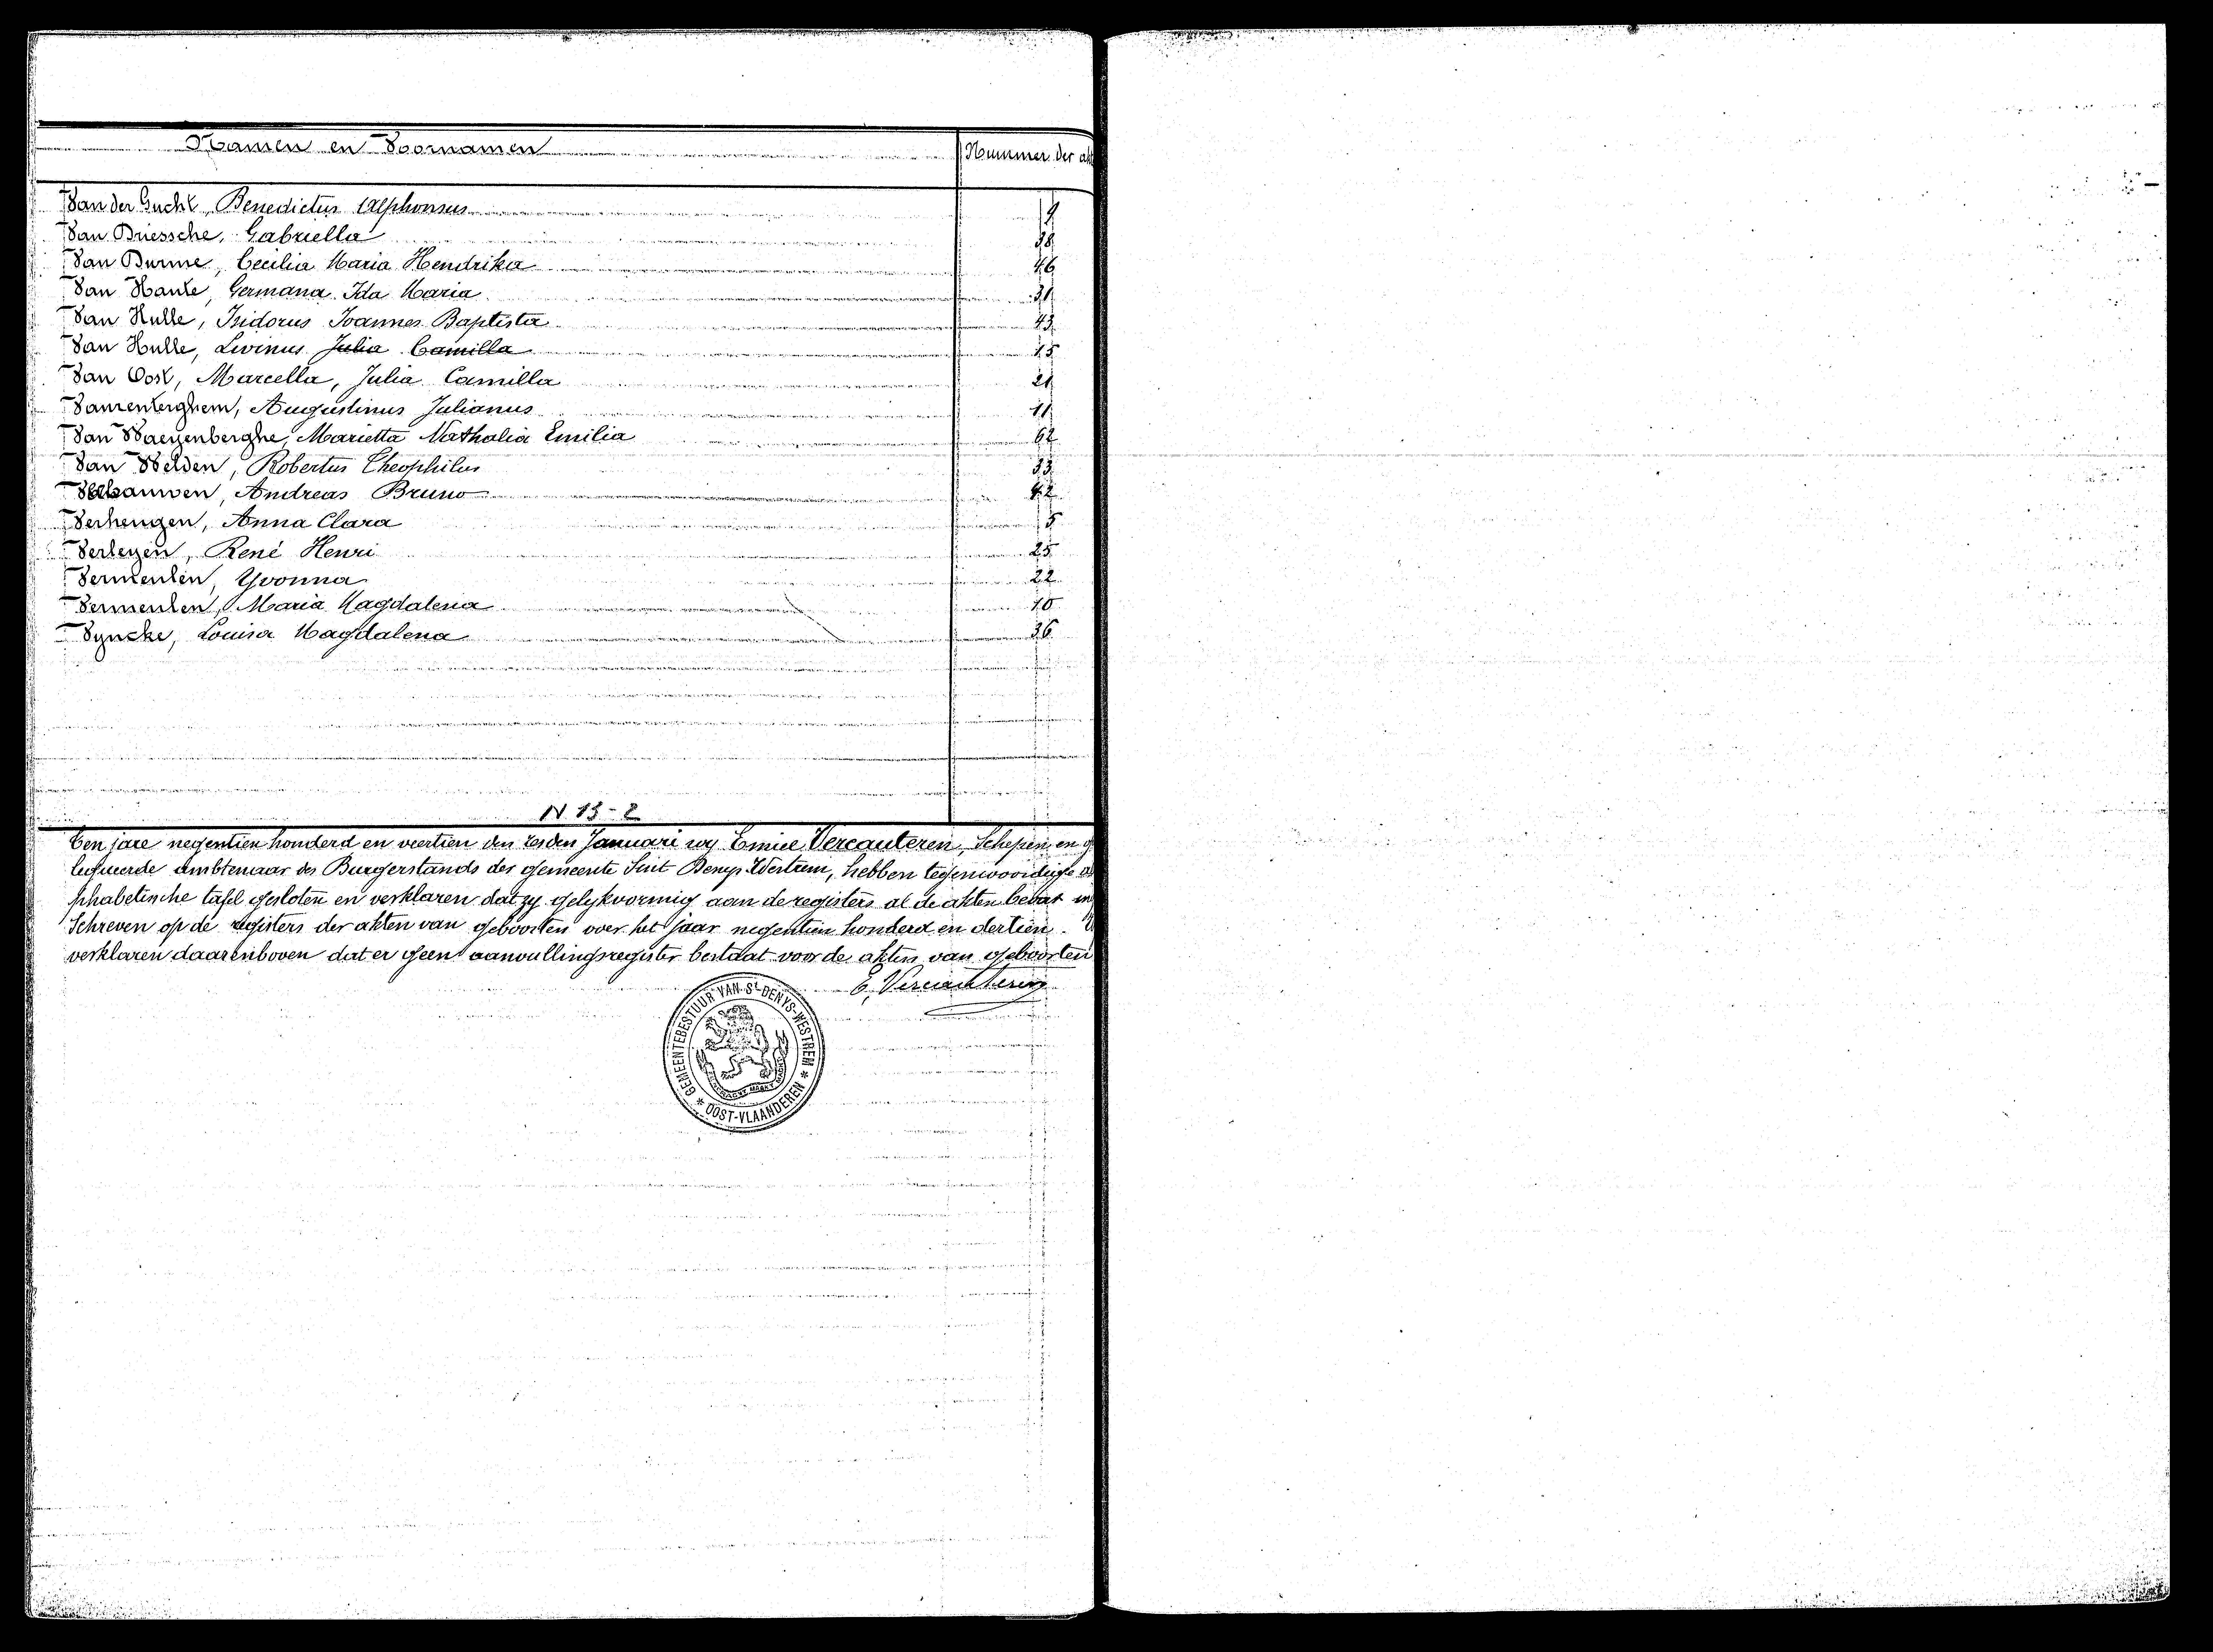 Namen en Voornamen Nummer der ak
Van der Gucht, Benedictus Alphonsus
Van Driessche, Gabriella 38
Van Durme, Cecilia Maria Hendrika 46
Van Haute, Germana Ida Maria 31
Van Hulle, Isidorus Joannes Baptista 43
Van Hulle, Livinus Julia Camilla 15
Van Oost, Marcella, Julia Camilla 21
Augustinus Julianus 11
Van Waeyenberghe, Marietta Nathalia Emilia
Van Welden, Robertus Theophilus 33
Andreas Bruno 42
Anna Clara 5
Verleyen, René Henri 25
Vermeulen, Yvonna 22
Vermeulen, Maria Magdalena 10
Vyncke, Louisa Magdalena 36
N 13-2
Ten jare negentien honderd en veertien den eersten Januari wij Emiel Vercauteren, Schepen, en ge
ambtenaar des Burgerstands der gemeente Sint Denys Westrem, hebben tegenwoordige al
phabetische tafel gesloten en verklaren dat zy gelykvormig aan de registers al de akten bevat in
Schreven op de registers der akten van geboorten over het jaar negentien honderd en dertien.
verklaren daarenboven dat er geen aanvullingsregister bestaat voor de akten van geboorten
E. Vercauteren
GEMEENTEBESTUUR VAN St DENYS-WESTREM
* OOST-VLAANDEREN *